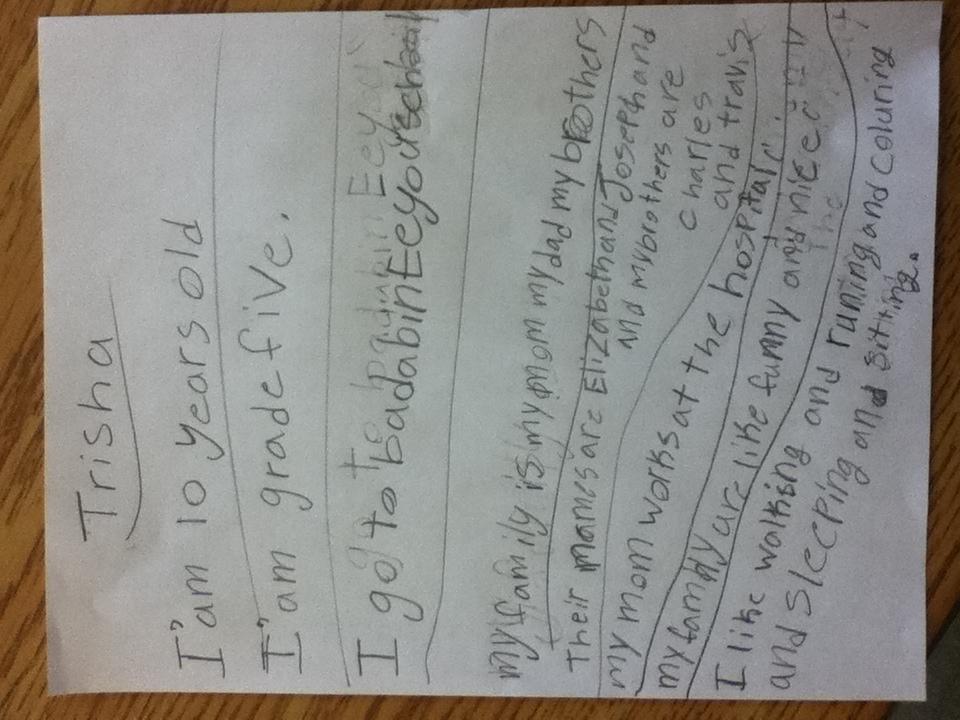 Trisha
I'am 10 years old
I'am grade five.
I go to badabin Eeyou school
my family is my mom my dad my brothers
Their mames are Elizabeth and Joseph and
and my brothers are
charles
and travis
my mom works at the hospital
my family are like funny and nice
I like walking and runing and coluring
and sleeping and sitting.